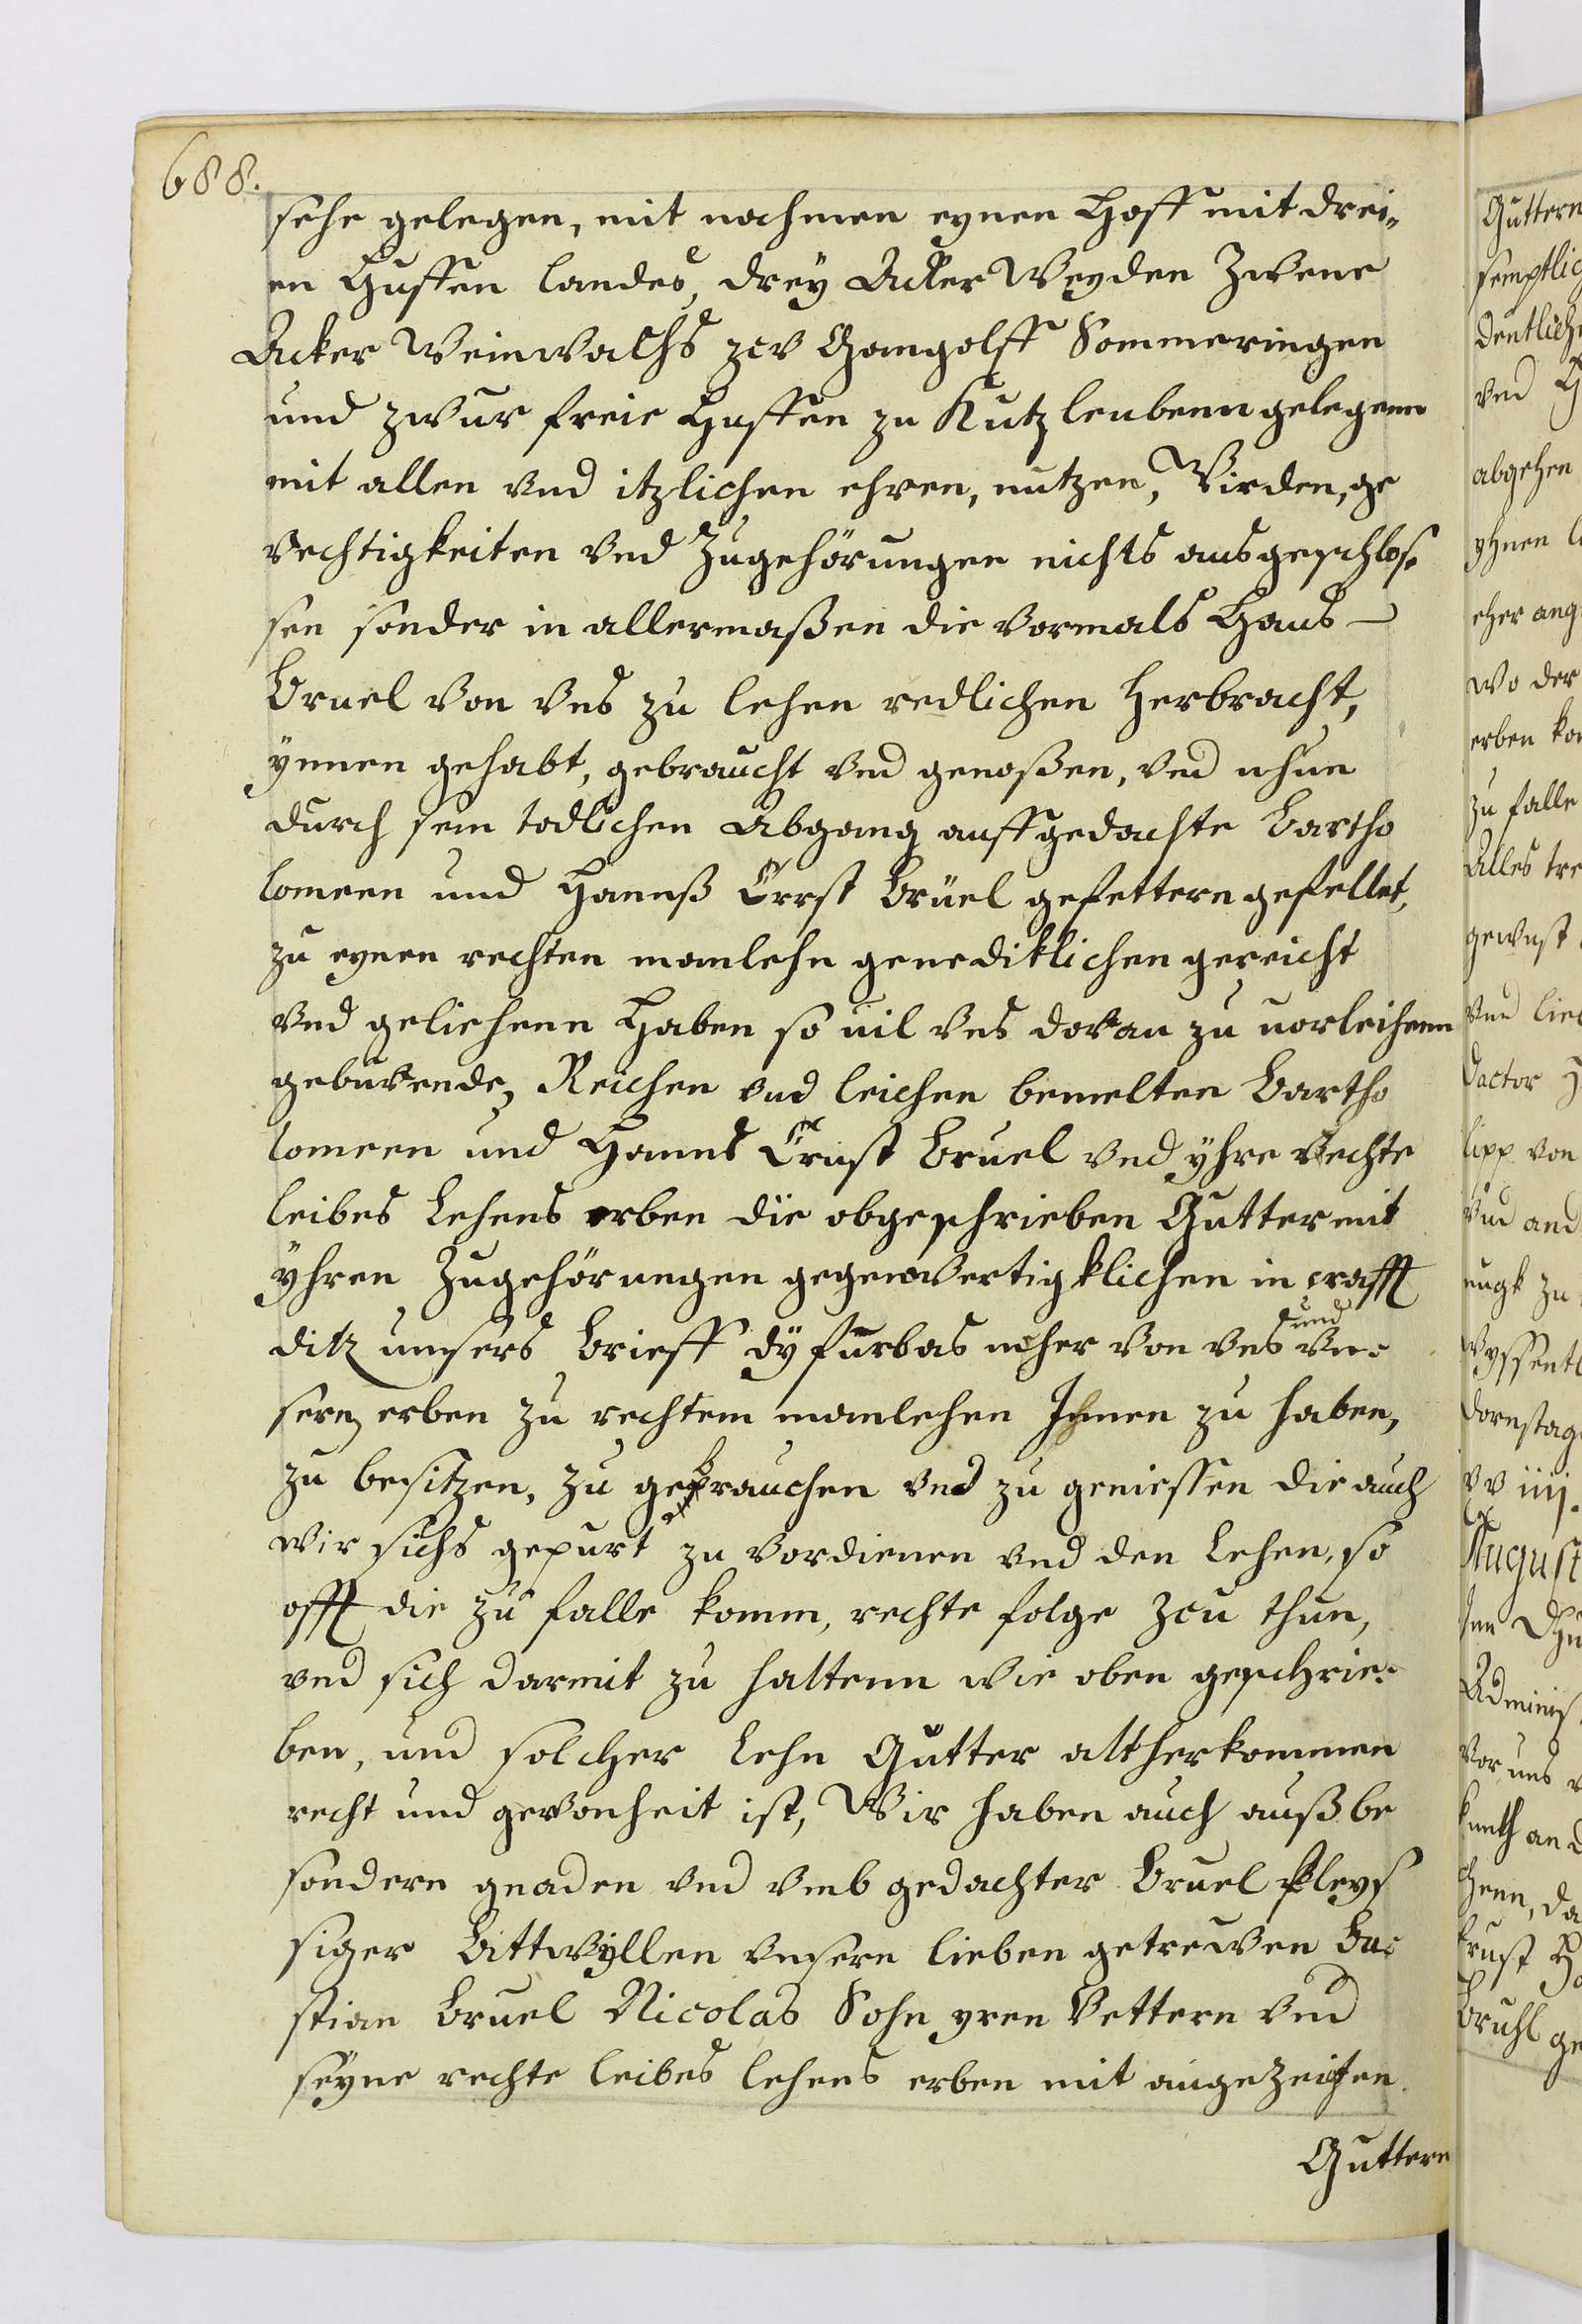 688.
sehe gelegen, mit nachmen eynen Hoff mit drei,
en Huffen landes, drey Acker Weyden Zwene
Acker Weinwachs zcv Gangolff Sommeringen
und zwur freie Huffen zu Kutzleubenn gelegenn
mit allen vnd itzlichen ehren, nutzen, Wirden, ge
rechtigkeiten vnd Zugehörungen nichts ausgeschlos,
sen sonder in allermaßen die vormals Hans
Bruel von vns zu lehen redlichen herbracht,
ynnen gehabt, gebraucht vnd genoßen, vnd nhun
durch sein todlichen Abgang auffgedachte Bartho
lomeen und Hannß Ernst Brüel gefettern gefellet,
zu eynen rechten manlehn genediklichen gereicht
vnd geliehenn haben so uil vns doran zu uorleihenn
geburende, Reichen vnd leichen bemelten Bartho
lomeen und Hanns Ernst Bruel vnd yhre rechte
leibes Lehens erben die obgeschrieben Gutter mit
yhren Zugehörungen gegenwertigklichen in crafft
ditz unsers Brieff dy furbas meher von vns und vn
sern erben zu rechtem manlehen Ihnen zu haben,
zu besitzen, zu gebrauchen vnd zu geniessen die auch
wir sichs gepurt zu vordienen vnd den Lehen, so
offt die zu falle komm, rechte folge zcu thun,
vnd sich darmit zu haltenn wie oben geschrie,
ben, und solcher Lehn Gutter altherkommen
recht und gewonheit ist, Wir haben auch auß be
sondern gnaden vnd vmb gedachter Bruel fleys
siger Bittwyllen vnsern lieben getrewen Bas
stian Bruel Nicolas Sohn yren Vettern vnd
seyne rechte leibes lehens erben mit angezeigten
Guttern
Guttern
semptlich
dentliche
vnd
abgehen
yhnen
eher ang
wo der
erben
zu falle
Alles
gewust
vnd lieb
Dactor
lipp von
vnd and
zu
Wyssent
Dornstag
August
Adminis
vor uns
an
chenn, da
Ernst
Bruhl ge